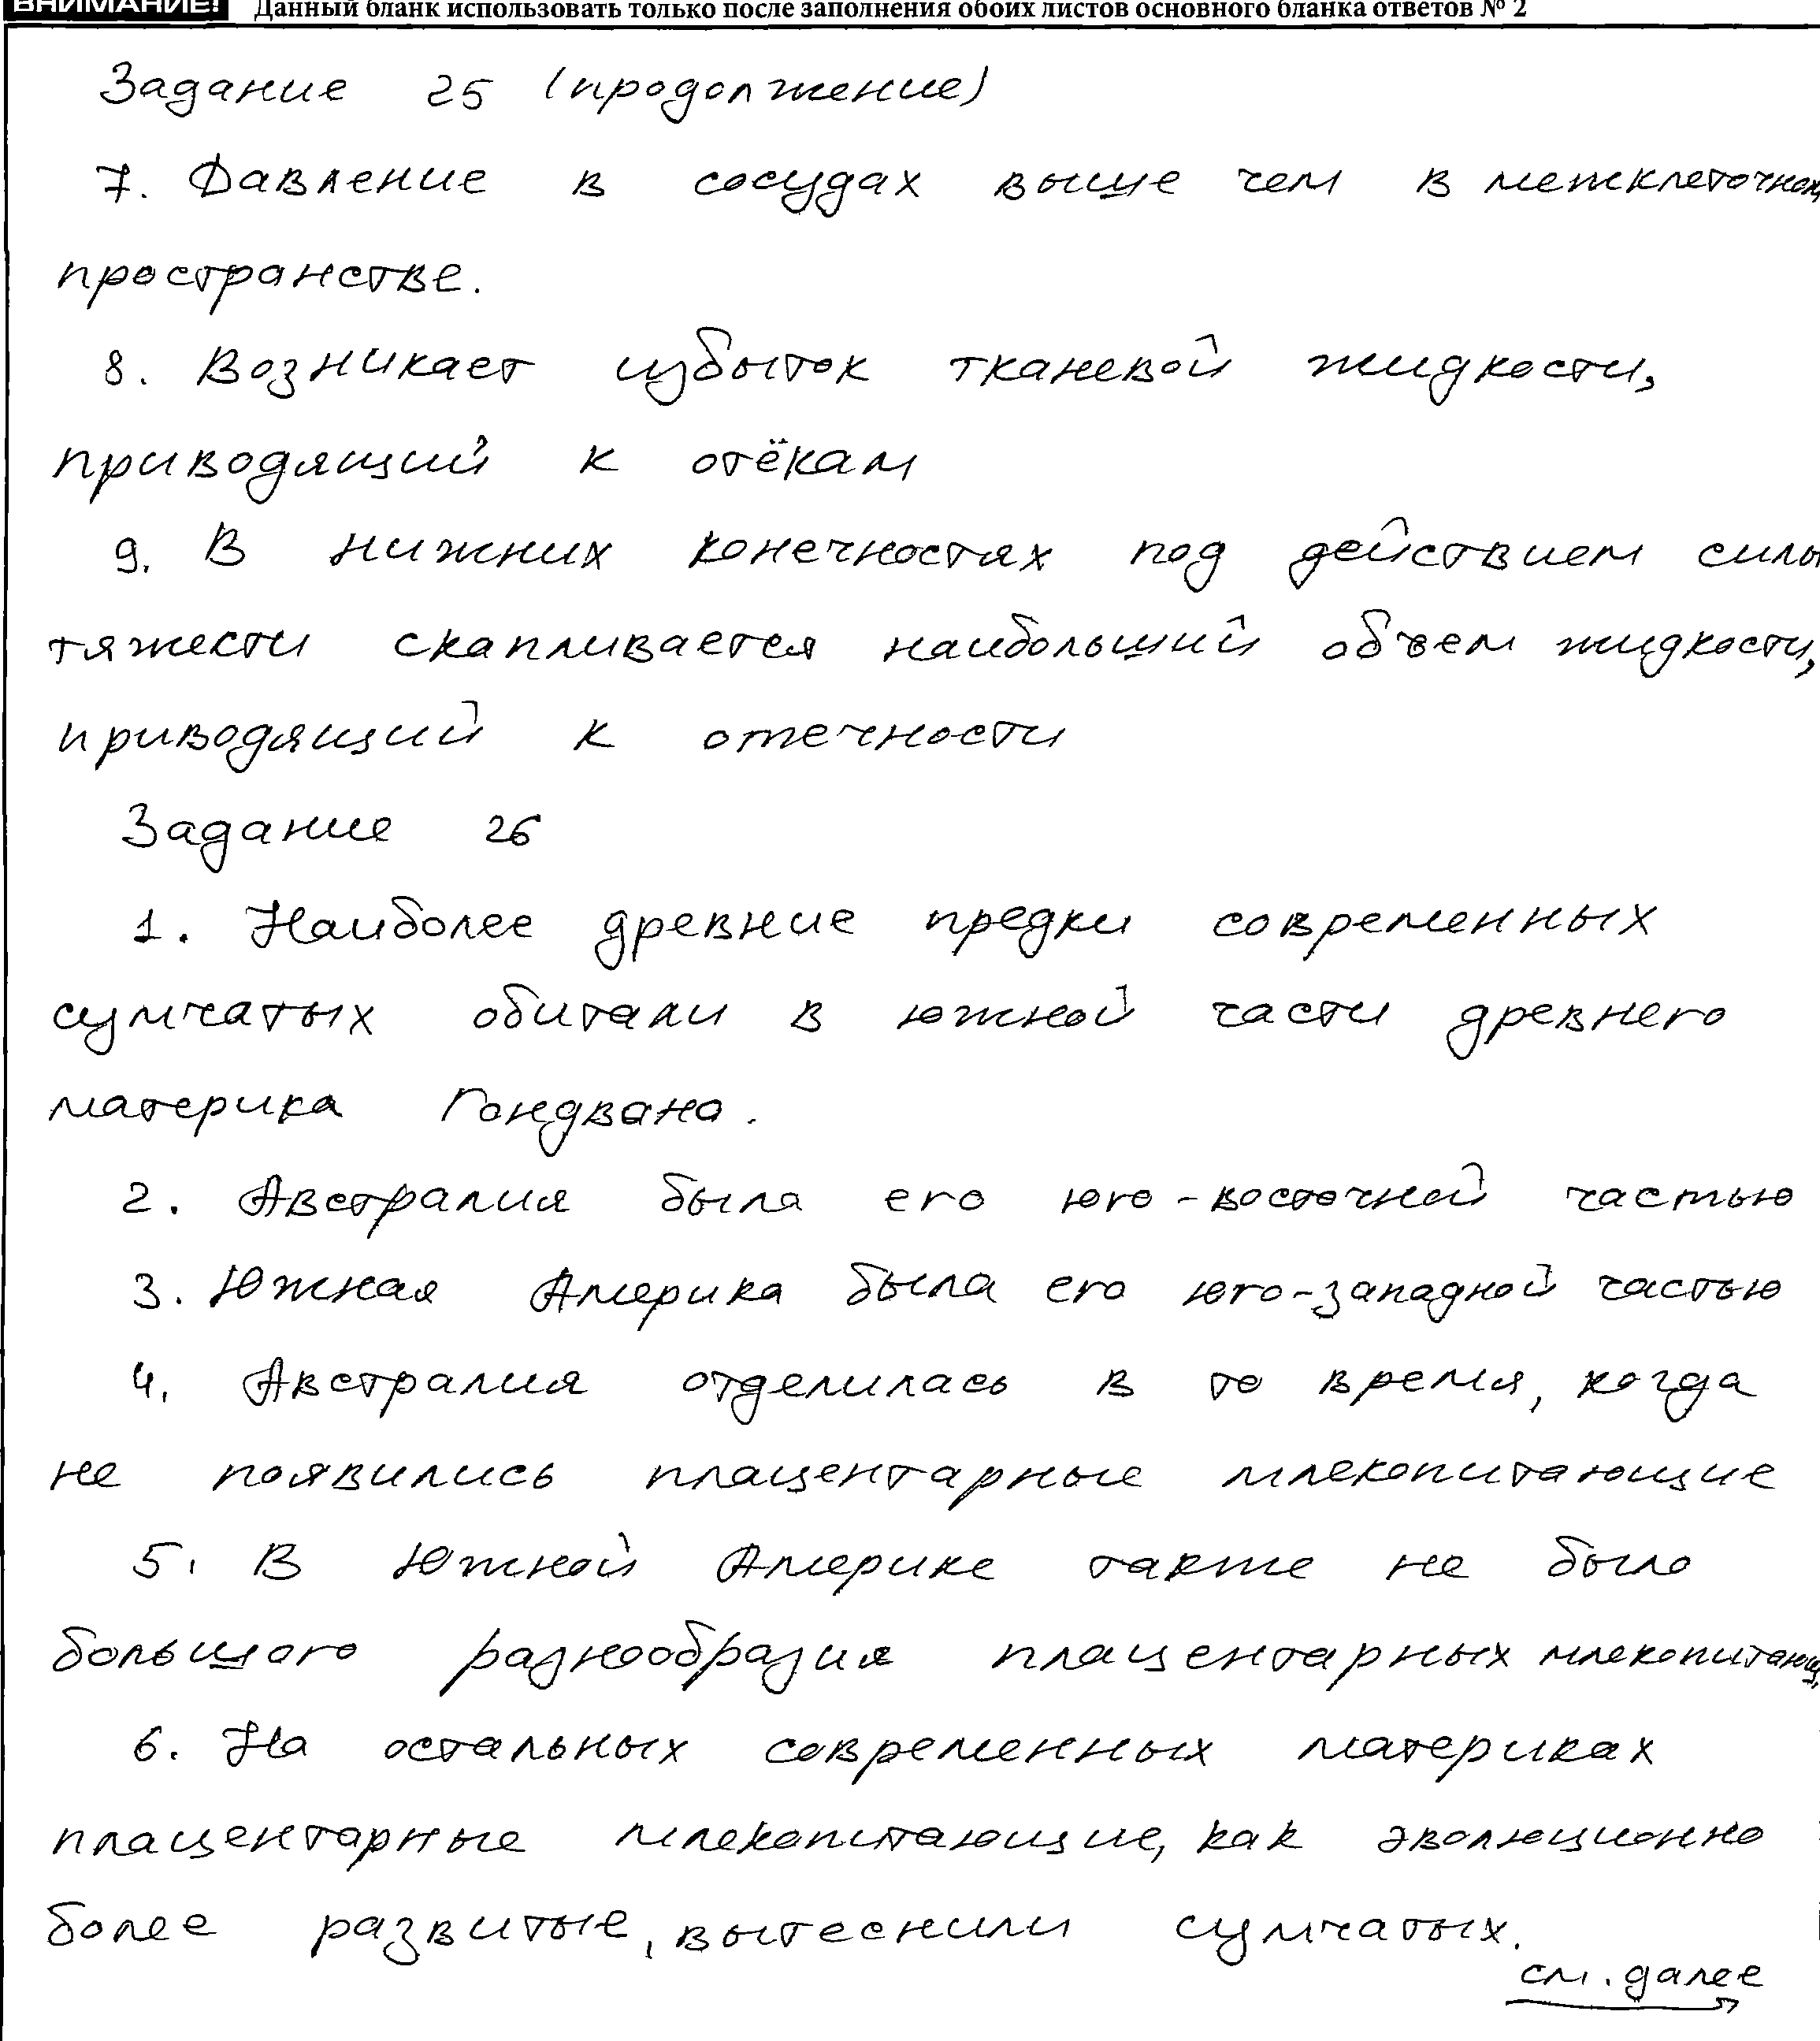 ВНИМАНИЕ! Данный бланк использовать только после заполнения обоих листов основного бланка ответов № 2
Задание 25 (продолжение)
7. Давление в сосудах выше чем в межклеточном
пространстве.
8. Возникает избыток тканевой жидкости,
приводящий к отёкам
9. В нижних конечностях под действием силы
тяжести скапливается наибольший объем жидкости,
приводящий к отечности
Задание 26
1. Наиболее древние предки современных
сумчатых обитали в южной части древнего
материка Гондвана.
2. Австралия была его юго-восточной частью
3. Южная Америка была его юго-западной частью
4. Австралия отделилась в то время, когда
не появились плацентарные млекопитающие
5. В Южной Америке также не было
большого разнообразия плацентарных млекопитающ.
6. На остальных современных материках
плацентарные млекопитающие, как эволюционно
более развитые, вытеснили сумчатых.
см. далее